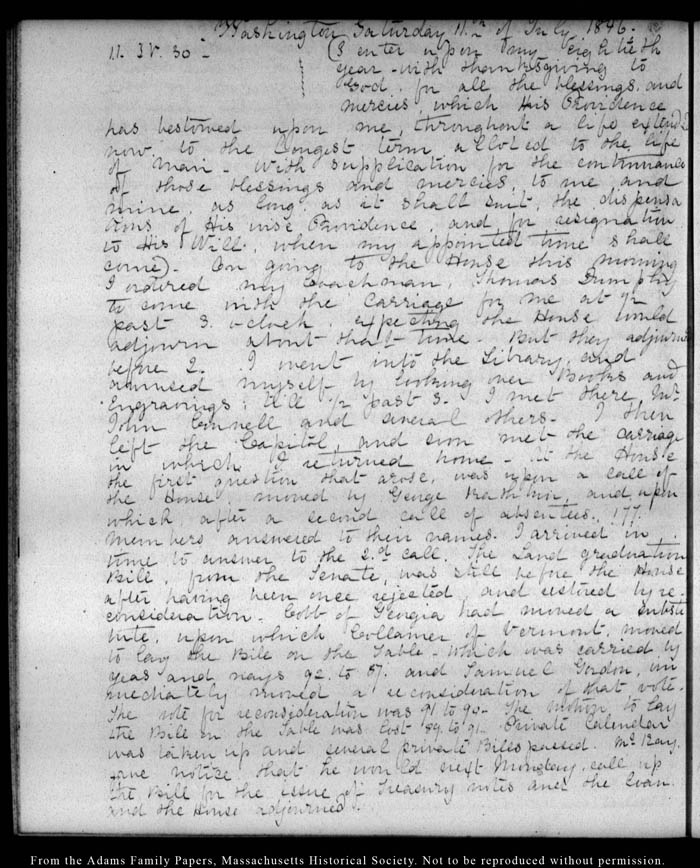 Washington Saturday 11.th of July 1846.
11. IV. 30 – (I enter upon my eightieth
year – with thanksgiving to
God, for all the blessings and
mercies, which His Providence
has bestowed upon me, throughout a life extend.d
now to the longest term allotted to the life
of man – With supplication for the continuance
of those blessings and mercies, to me and
mine, as long as it shall suit, the dispensa
tions of His wise Providence, and for resignation
to His Will, when my appointed time shall
come). On going to the House this morning
I ordered my Coachman, Thomas Dumphy
to come with the Carriage for me at 1/2
past 3. o'clock, expecting the House would
adjourn about that time – But they adjourned
before 2. I went into the Library, and
amused myself by looking over Books and
Engravings, till 1/2 past 3. I met there, Mr
John Connell and several others – I then
left the Capitol, and soon met the carriage
in which I returned home – At the House
the first question that arose, was upon a call of
the House, moved by George Rathbun, and upon
which, after a second call of absentees, 177.
members answered to their names. I arrived in
time to answer to the 2.d call. The Land graduation
Bill, from the Senate, was still before the House
after having been once rejected, and restored by re-
consideration – Cobb of Georgia had moved a substi
tute, upon which Collamer of Vermont, moved
to lay the Bill on the Table – which was carried by
yeas and nays 92. to 87. and Samuel Gordon, im
mediately moved a reconsideration of that vote.
The vote for reconsideration was 91 to 90 – The motion to lay
the Bill on the Table was lost 89. to 91 – Private Calendar
was taken up and several private Bills passed. Mc Kay.
gave notice that he would next Monday, call up
the Bill for the issue of Treasury notes and the Loan
and the House adjourned.
From the Adams Family Papers, Massachusetts Historical Society. Not to be reproduced without permission.